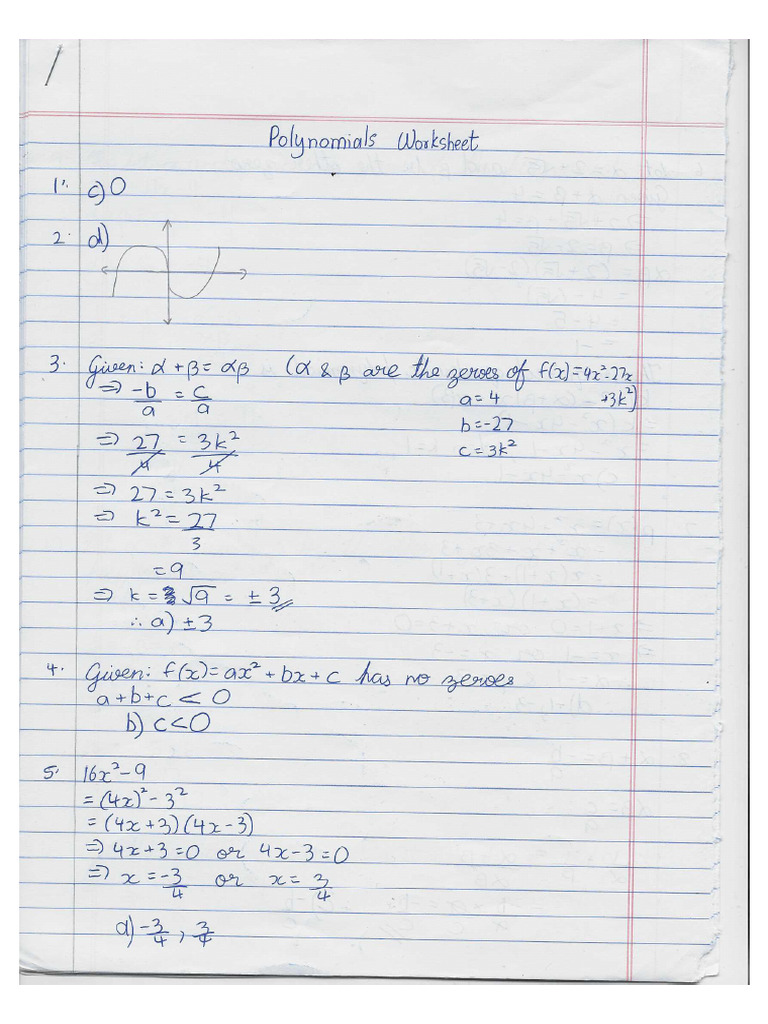 1
Polynomials Worksheet
1. c) 0
2. d)
3. Given: α + β = αβ (α & β are the zeroes of f(x) = 4x² - 27x + 3k²)
⇒ -b/a = c/a a = 4
b = -27
⇒ 27/4 = 3k²/4 c = 3k²
⇒ 27 = 3k²
⇒ k² = 27/3
= 9
⇒ k = √9 = ± 3
∴ a) ± 3
4. Given: f(x) = ax² + bx + c has no zeroes
a + b + c < 0
b) c < 0
5. 16x² - 9
= (4x)² - 3²
= (4x + 3)(4x - 3)
⇒ 4x + 3 = 0 or 4x - 3 = 0
⇒ x = -3/4 or x = 3/4
d) -3/4, 3/4